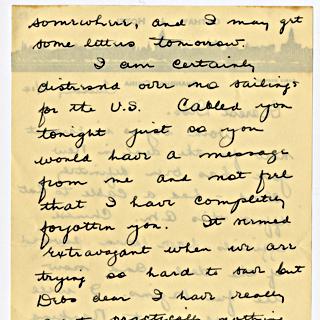 somewhere, and I may get
some letters tomorrow.
I am certainly
distressed over no sailings
for the U.S. Cabled you
tonight just so you
would have a message
from me and not feel
that I have completely
forgotten you. It seemed
extravagant when we are
trying so hard to save but
Dibs dear I have really
spent practically nothing